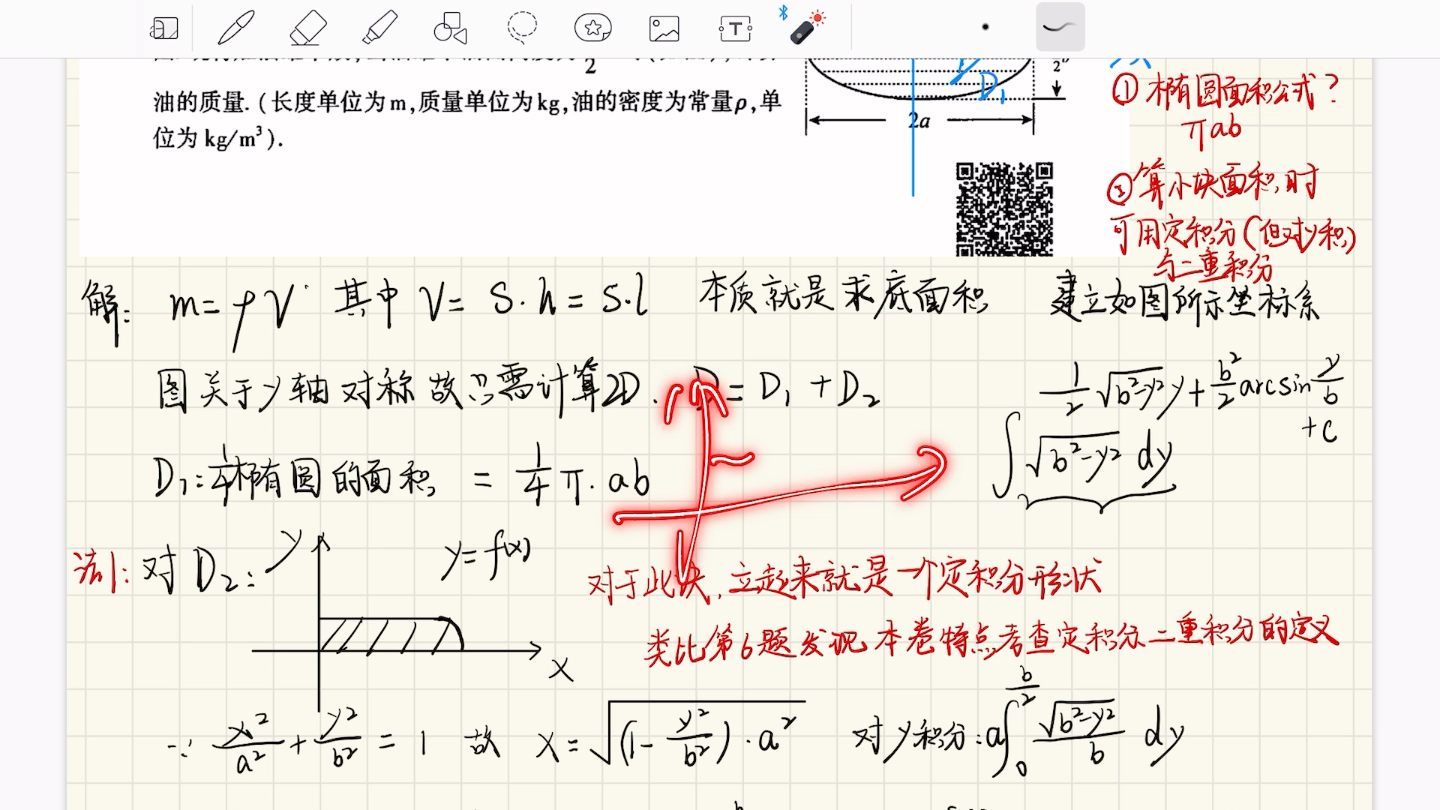 油的质量.(长度单位为m,质量单位为kg,油的密度为常量ρ,单
位为kg/m³).
2a
D₁
① 椭圆面积公式?
πab
② 算小块面积时
可用定积分(但对y积)
与二重积分
解: m=ρV 其中 V= S·h = S·l 本质就是求底面积 建立如图所示坐标系
图关于y轴对称故只需计算2D. D=D₁+D₂
1/2 √(b²-y²) y + b²/2 arcsin y/b + C
D₁: 1/4椭圆的面积 = 1/4 π·ab
∫√(b²-y²) dy
法1: 对D₂:
y
y=f(x)
x
对于此块,立起来就是一个定积分形状
类比第6题发现本卷特点考查定积分二重积分的定义
∵ x²/a² + y²/b² = 1 故 x=√((1-y²/b²)·a²) 对y积分: a∫₀^(b/2) √(b²-y²)/b dy